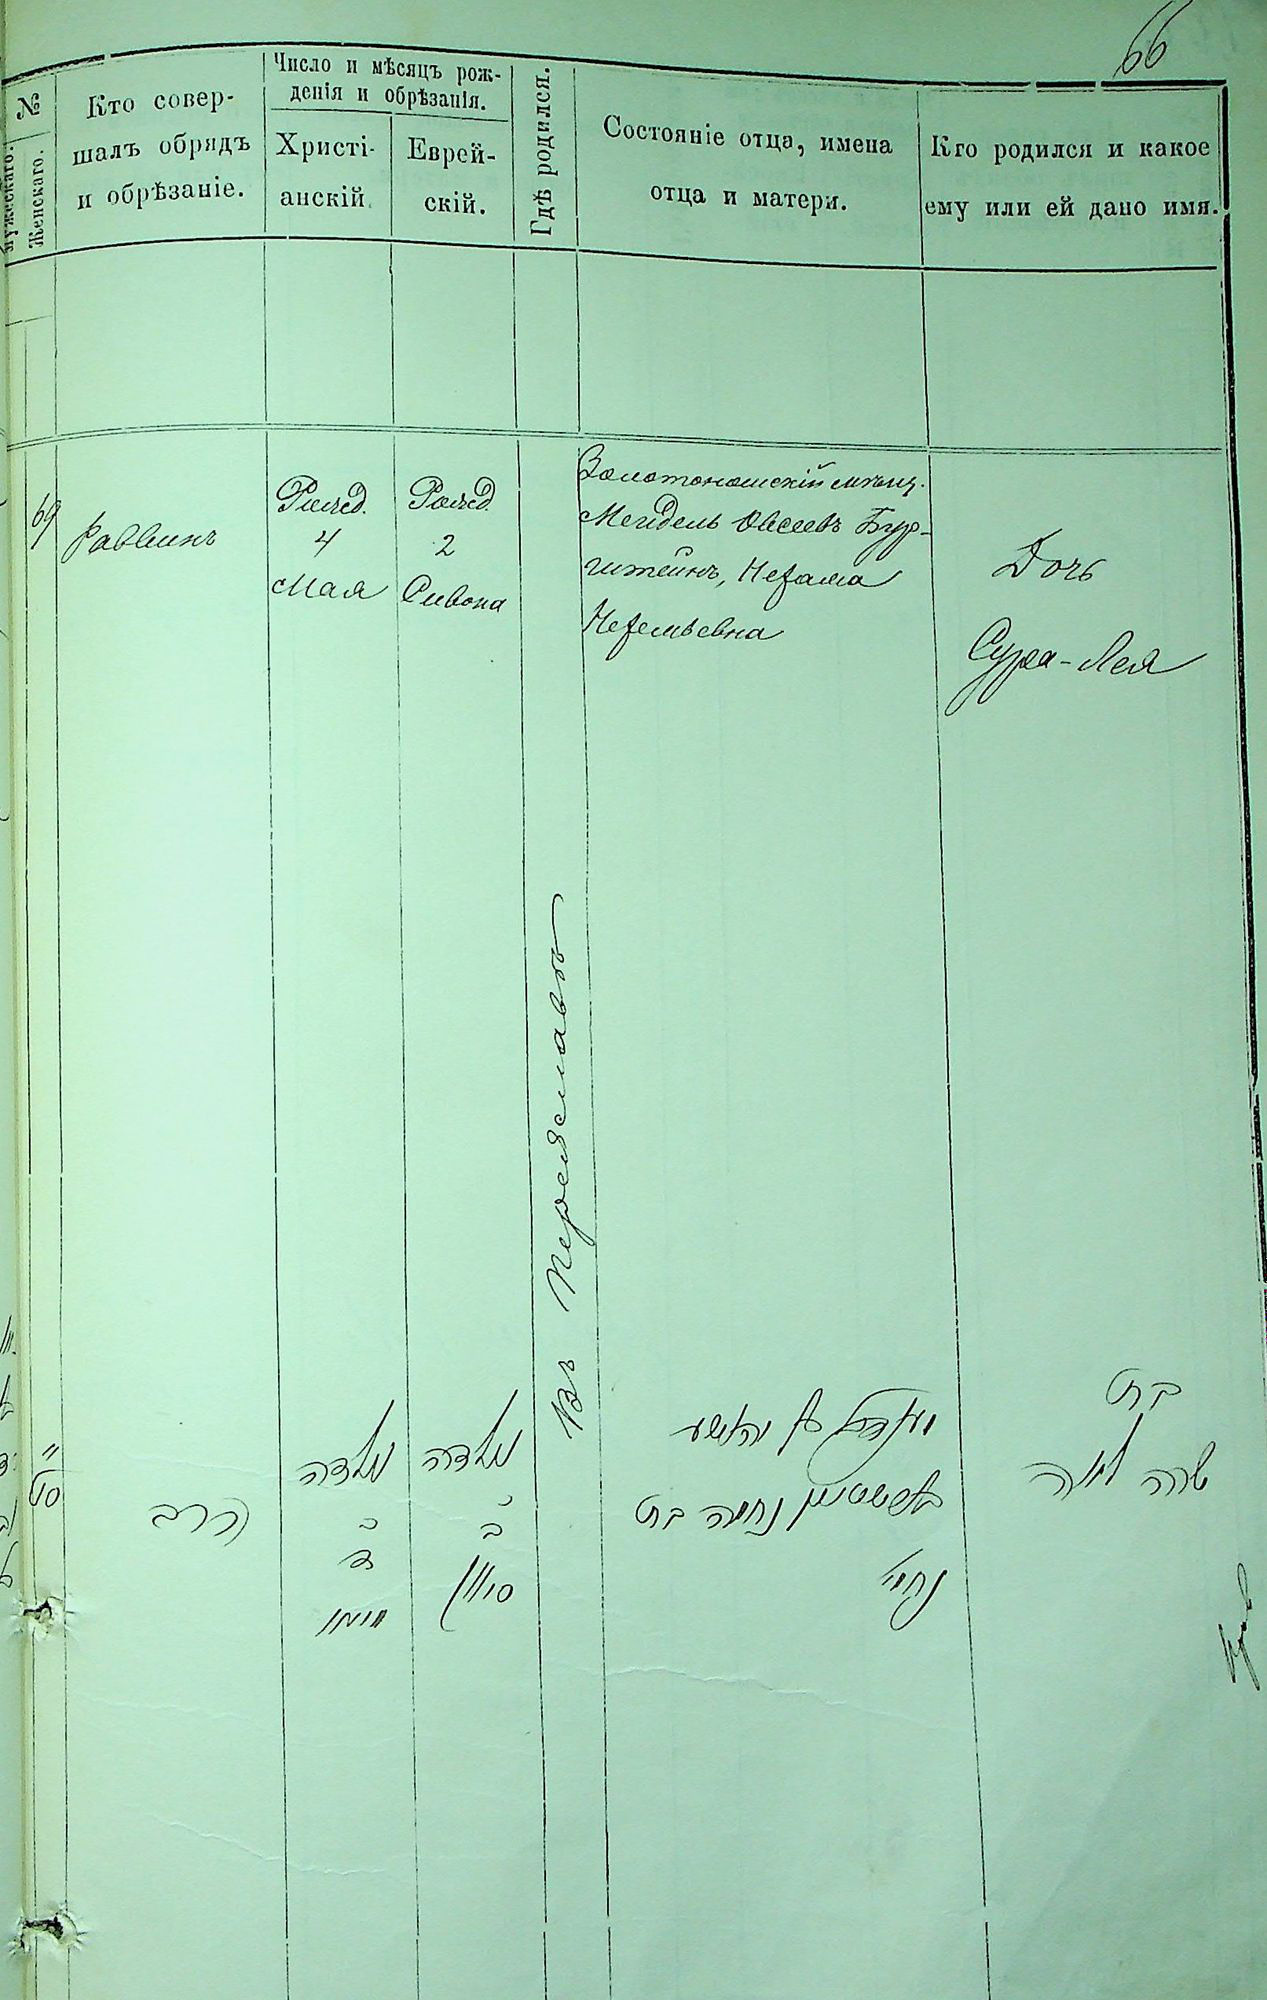 66
№
Мужескаго.
Женскаго.
Кто совер-
шалъ обрядъ
и обрѣзаніе.
Число и мѣсяцъ рож-
денія и обрѣзанія.
Христі-
анскій.
Еврей-
скій.
Гдѣ родился.
Состояніе отца, имена
отца и матери.
Кто родился и какое
ему или ей дано имя.
69
Раввинъ
Рожд.
4
Мая
Рожд.
2
Сивона
Въ Переяславѣ
Золотоношскій мѣщ.
Мендель Овсеевъ Бур-
штейнъ, Нехама
Нехемьевна
Дочь
Сура-Лея
סט
הרב
נולדה
ד
נולדה
ב
סיון
מענדל בן יהושע
בורשטיין נחמה בת
נחמי'
בת
שרה לאה